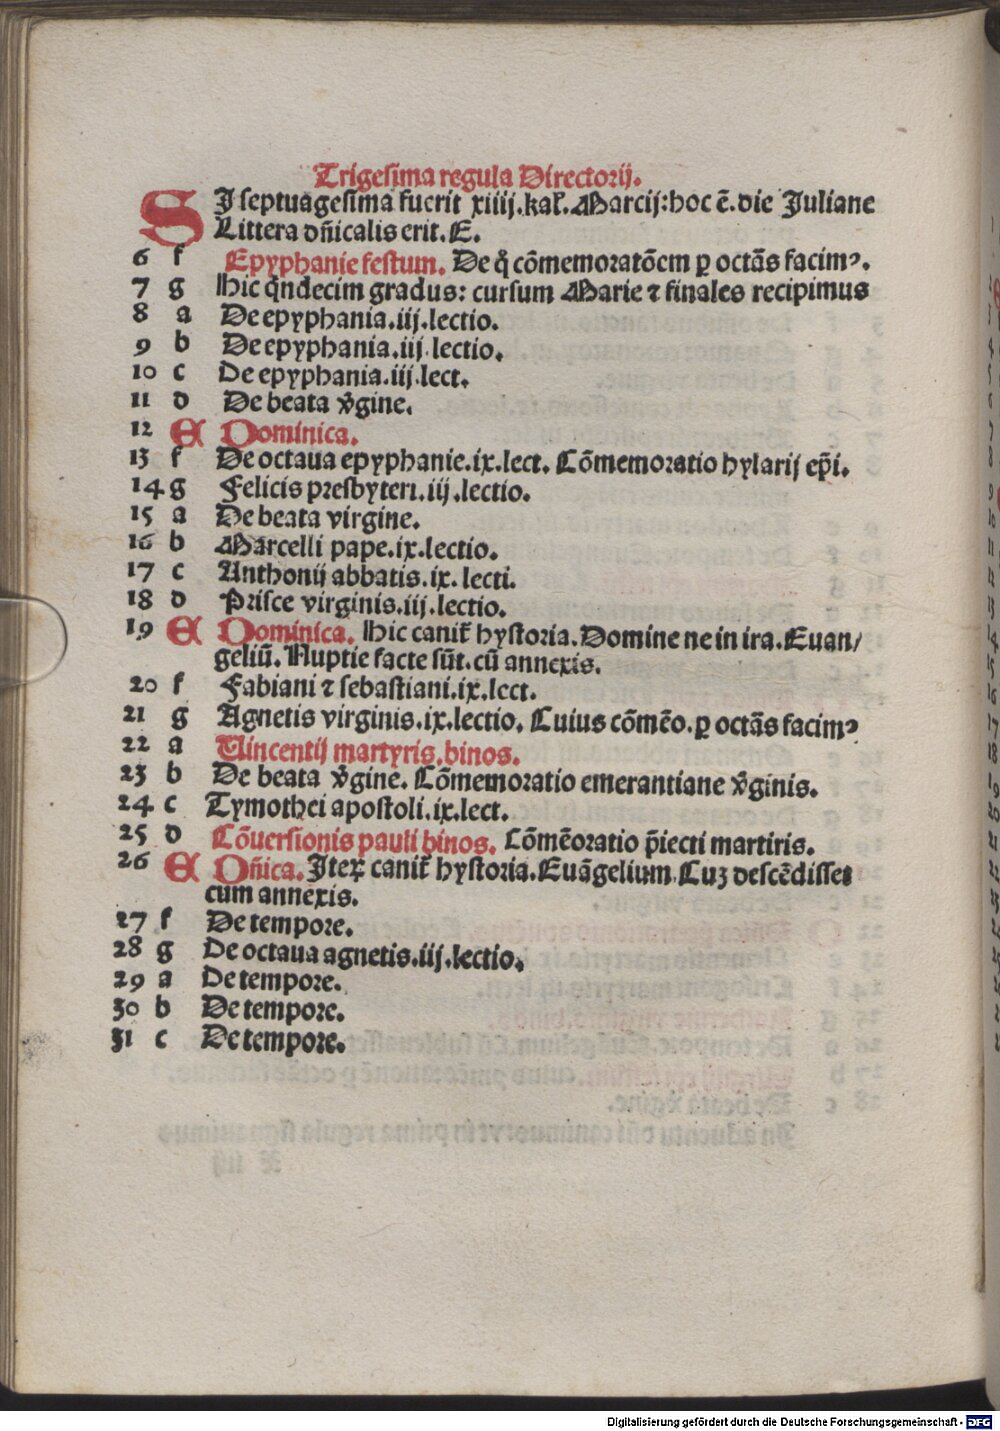 Trigesima regula Directorij.
SI septuagesima fuerit xiiij.kal̃.Marcij:hoc ē.die Juliane
Littera dñicalis erit.E.
6 f Epyphanie festum. De q̊ cōmemoratōem ꝑ octãs facimꝰ.
7 g Hic q̄ndecim gradus: cursum Marie ⁊ finales recipimus
8 a De epyphania.iij.lectio.
9 b De epyphania.iij.lectio.
10 c De epyphania.iij.lect.
11 d De beata v̓gine.
12 E Dominica.
13 f De octaua epyphanie.ix.lect. Cōmemoratio hylarij ep̄i.
14 g Felicis presbyteri.iij.lectio.
15 a De beata virgine.
16 b Marcelli pape.ix.lectio.
17 c Anthonij abbatis.ix. lecti.
18 d Prisce virginis.iij.lectio.
19 E Dominica. Hic canit̃ hystoria.Domine ne in ira.Euan/
geliū. Nuptie facte sūt.cū annexis.
20 f Fabiani ⁊ sebastiani.ix.lect.
21 g Agnetis virginis.ix.lectio. Cuius cōmēo.ꝑ octãs facimꝰ
22 a Vincentij martyris.binos.
23 b De beata v̓gine. Cōmemoratio emerantiane v̓ginis.
24 c Tymothei apostoli.ix.lect.
25 d Cōuersionis pauli binos. Cōmēoratio p̄iecti martiris.
26 E Dñica. Iteꝝ canit̃ hystoria.Euāgelium.Cuʒ descēdisset
cum annexis.
27 f De tempore.
28 g De octaua agnetis.iij.lectio.
29 a De tempore.
30 b De tempore.
31 c De tempore.
Digitalisierung gefördert durch die Deutsche Forschungsgemeinschaft - DFG